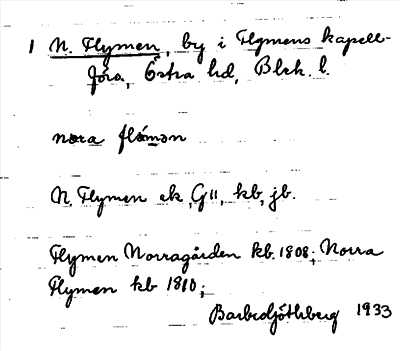 1 N. Flymen, by i Flymens kapell-
förs, Östra hd, Blek. l.
nora flýmən
N. Flymen ek, G11, kb, jb.
Flymen Norragården kb. 1808; Norra
Flymen kb 1810;
1933